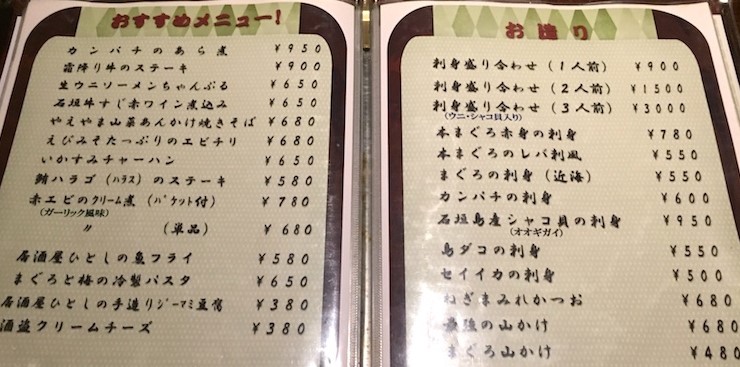 おすすめメニュー!
カンパチのあら煮 ¥950
霜降り牛のステーキ ¥900
生ウニソーメンちゃんぷる ¥650
石垣牛すじ赤ワイン煮込み ¥650
やえやま山菜あんかけ焼きそば ¥680
えびみそたっぷりのエビチリ ¥680
いかすみチャーハン ¥650
鮪ハラゴ(ハラス)のステーキ ¥580
赤エビのクリーム煮(バケット付) ¥780
(ガーリック風味)
〃 (単品) ¥680
居酒屋ひとしの魚フライ ¥580
まぐろと梅の冷製パスタ ¥650
居酒屋ひとしの手造りジーマミ豆腐 ¥380
酒盗クリームチーズ ¥380
お造り
刺身盛り合わせ(1人前) ¥900
刺身盛り合わせ(2人前) ¥1500
刺身盛り合わせ(3人前) ¥3000
(ウニ・シャコ貝入り)
本まぐろ赤身の刺身 ¥780
本まぐろのレバ刺風 ¥550
まぐろの刺身(近海) ¥550
カンパチの刺身 ¥600
石垣島産シャコ貝の刺身 ¥950
(オオギガイ)
島ダコの刺身 ¥550
セイイカの刺身 ¥500
ねぎまみれかつお ¥680
最強の山かけ ¥680
まぐろ山かけ ¥480